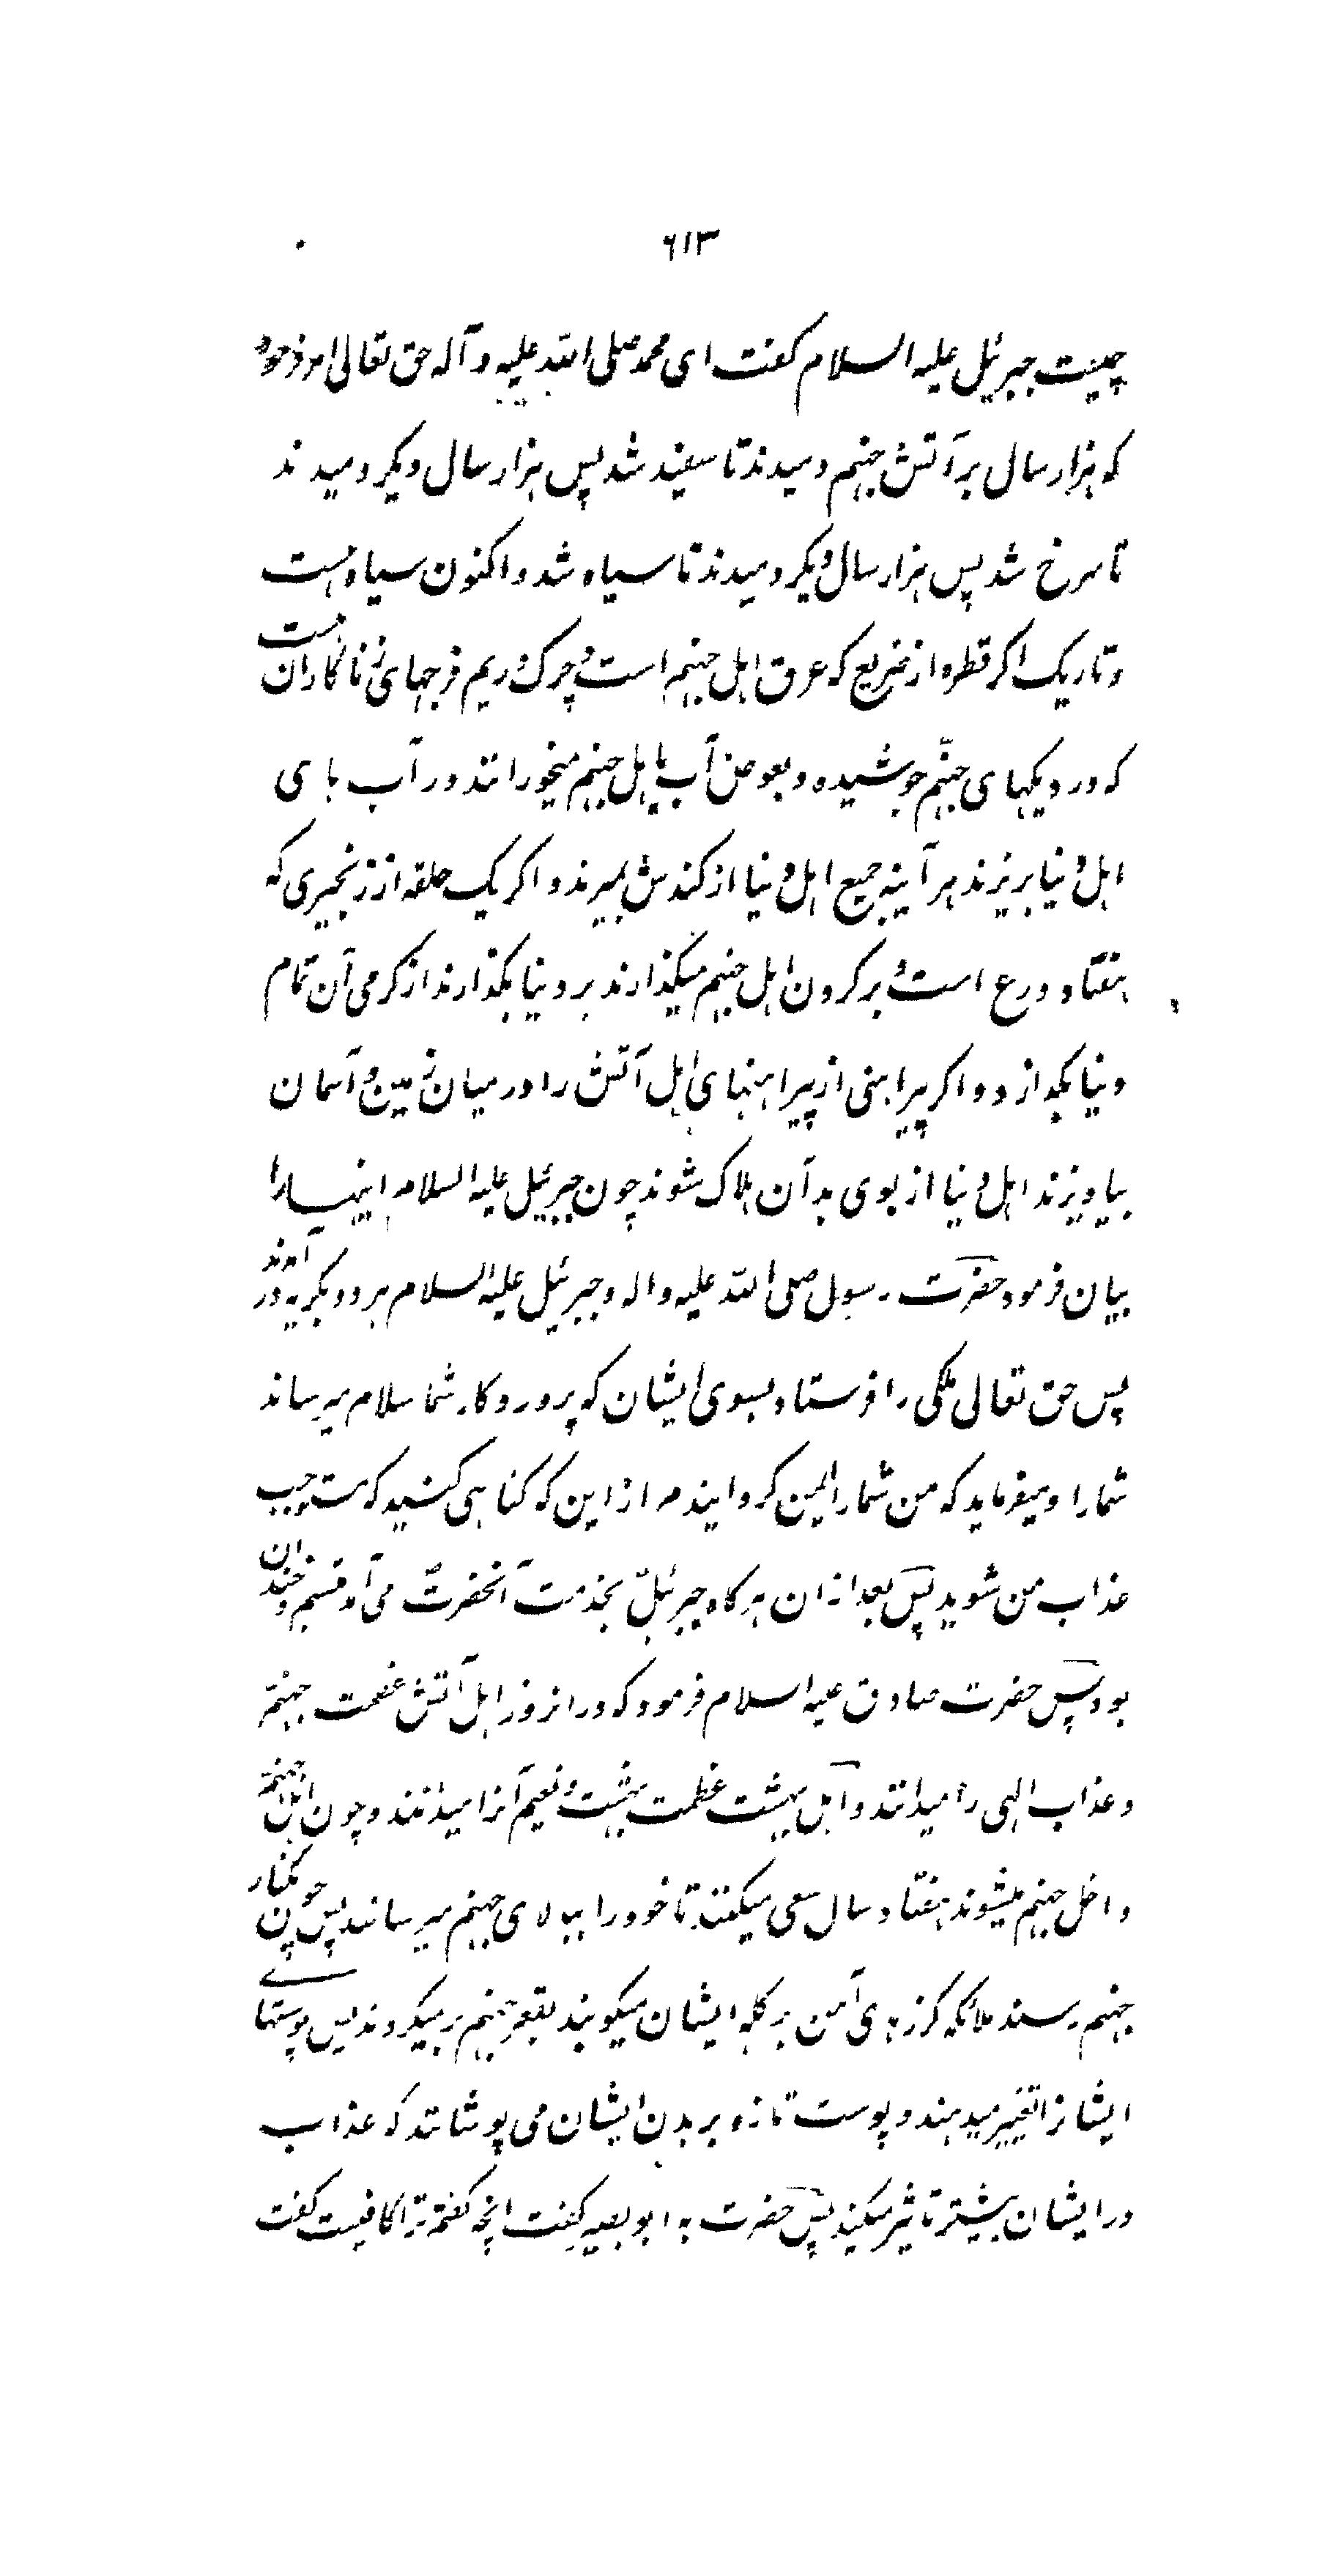 ٦١٣
چیست جبرئیل علیه السلام کفت ای محمد صلی الله علیه و آله حق تعالی امر فرمود
که هزار سال بر آتش جهنم دمیدند تا سفید شد پس هزار سال دیکر دمیدند
تا سرخ شد پس هزار سال دیکر دمیدند تا سیاه شد و اکنون سیاه است
و تاریک اکر قطره از ضریع که عرق اهل جهنم است و چرک و ریم فرجهای زناکاران است
که در دیکهای جهنّم جوشیده و بعوض آب باهل جهنم میخورانند در آب های
اهل دنیا بریزند هر آینه جمیع اهل دنیا از کندش بمیرند و اکر یک حلقه از زنجیری که
هفتاد درع است و بر کردن اهل جهنم میکذارند بر دنیا بکذارند از کرمی آن تمام
دنیا بکدازد و اکر پیراهنی از پیراهنهای اهل آتش را در میان زمین و آسمان
بیاویزند اهل دنیا از بوی بد آن هلاک شوند چون جبرئیل علیه السلام اینهارا
بیان فرمود حضرت رسول صلی الله علیه واله و جبرئیل علیه السلام هر دو بکریه در آمدند
پس حق تعالی ملکی را فرستاد بسوی ایشان که پروردکار شما سلام میرساند
شمارا و میفرماید که من شمارا ایمن کردانیدم از این که کناهی کنید که مستوجب
عذاب من شوید پس بعد ازان هرکاه جبرئیل بخدمت آنحضرت می آمد متبسم و خندان
بود پس حضرت صادق علیه السلام فرمود که در انروز اهل آتش عظمت جهنم
و عذاب الهی را میدانند و اهل بهشت عظمت بهشت و نعیم آنرا میدانند و چون اهل جهنم
داخل جهنم میشوند هفتاد سال سعی میکنند تا خود را ببالای جهنم میرسانند پس چون بکنار
جهنم رسند ملائکه کرزهای آهن بر کله ایشان میکوبند بقعر جهنم بر میکردند پس پوستهای
ایشانرا تغییر میدهند و پوست تازه بر بدن ایشان می پوشانند که عذاب
در ایشان بیشتر تاثیر میکند پس حضرت به ابو بصیر کفت انچه کفتم ترا کافیست کفت